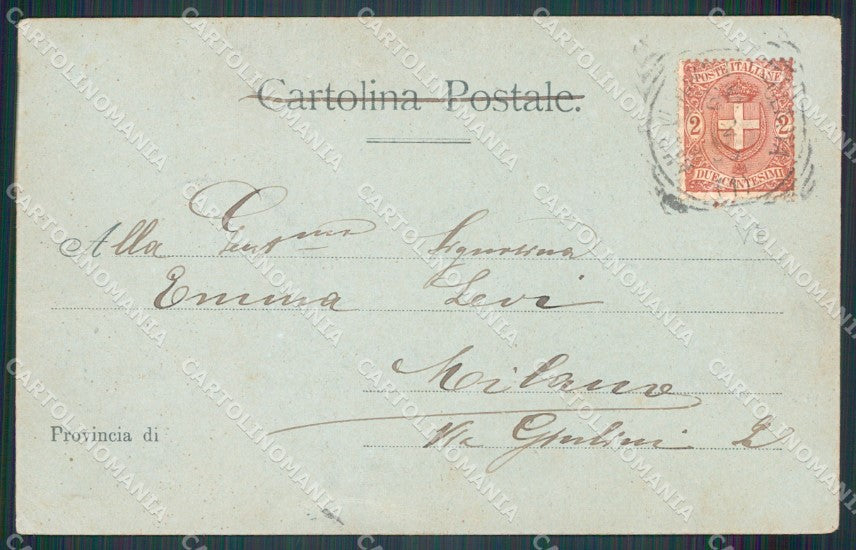 Cartolina Postale.
POSTE ITALIANE
2 2
DUE CENTESIMI
Alla Gent.ma Signorina
Emma Levi
Milano
Provincia di
Via Giulini 2
CARTOLINOMANIA